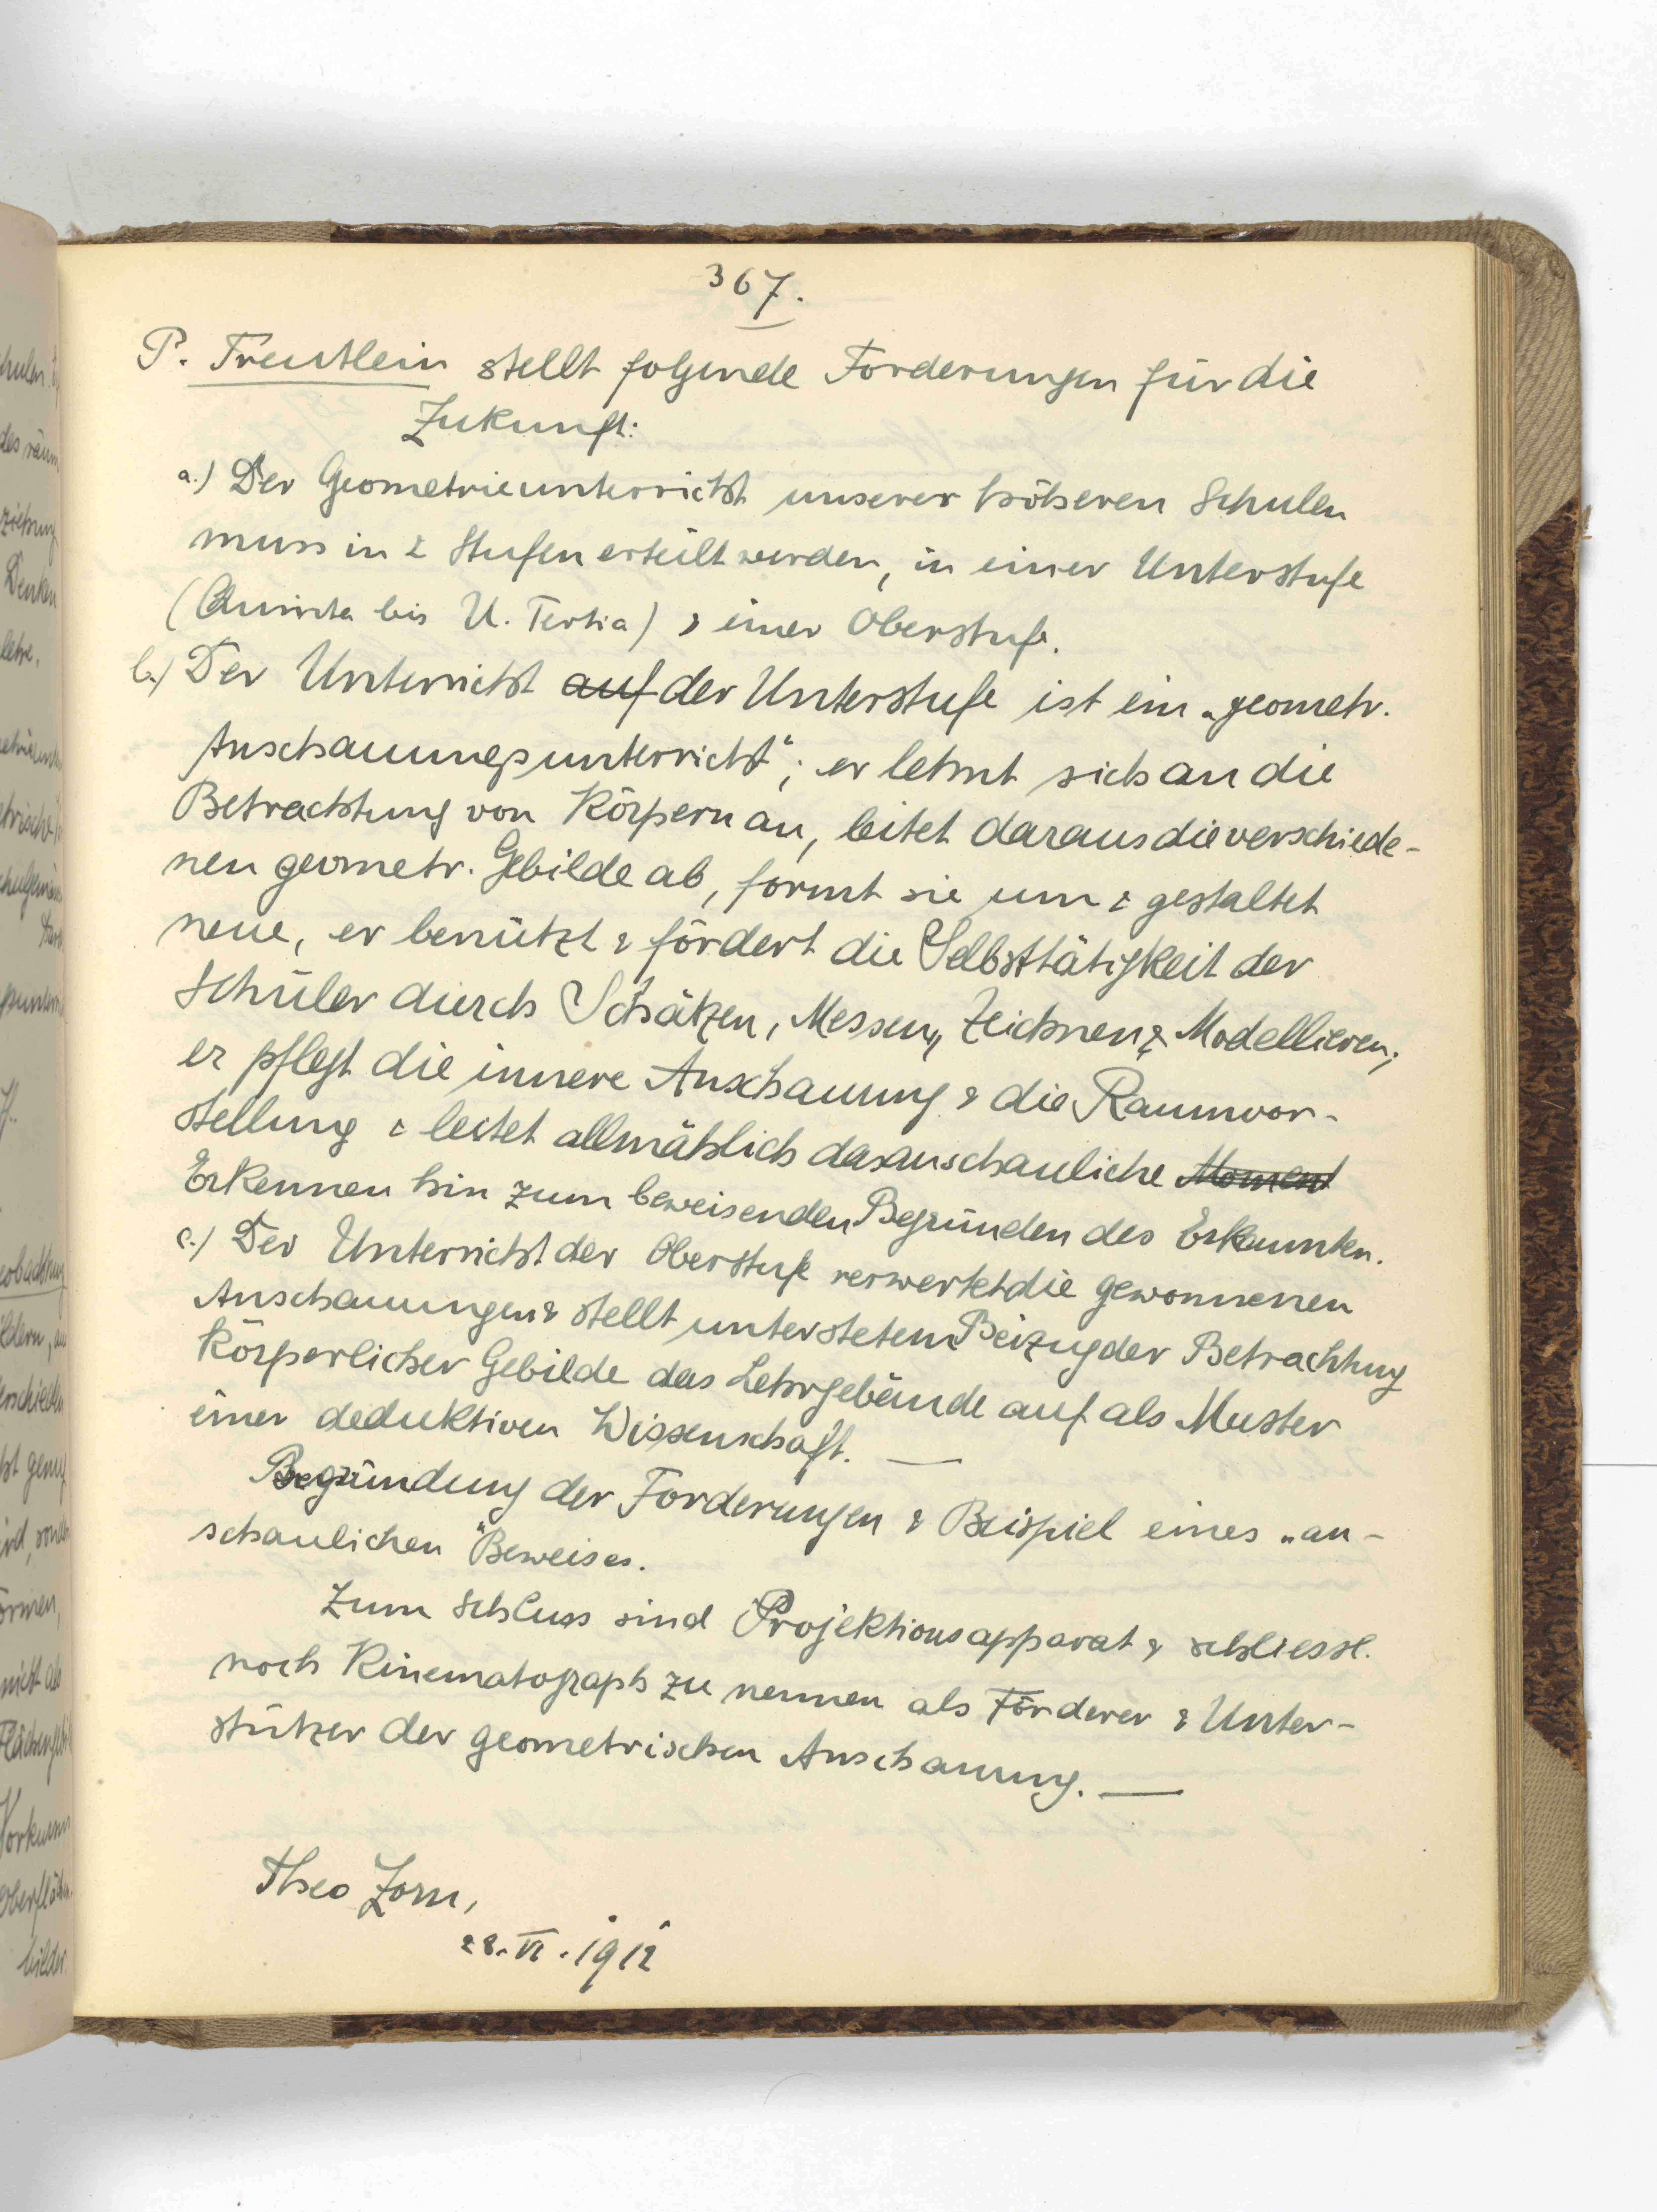 367.
P. Treutlein stellt folgende Forderungen für die
Zukunft:
a.) Der Geometrieunterricht unserer höheren Schulen
muss in 2 Stufen erteilt werden, in einer Unterstufe
(Quinta bis U. Tertia) & einer Oberstufe.
b.) Der Unterricht auf der Unterstufe ist ein „geometr.
Anschauungsunterricht“; er lehnt sich an die
Betrachtung von Körpern an, leitet daraus die verschiede-
nen geometr. Gebilde ab, formt sie um & gestaltet
neue, er benützt & fördert die Selbsttätigkeit der
Schüler durch Schätzen, Messen, Zeichnen & Modellieren;
er pflegt die innere Anschauung & die Raumvor-
stellung & leitet allmählich das anschauliche Moment
Erkennen hin zum beweisenden Begründen des Erkannten.
c.) Der Unterricht der Oberstufe verwertet die gewonnenen
Anschauungen & stellt unter stetem Beizug der Betrachtung
körperlicher Gebilde das Lehrgebäude auf als Muster
einer deduktiven Wissenschaft. —
Begründung der Forderungen & Beispiel eines „an-
schaulichen“ Beweises.
Zum Schluss sind Projektionsapparat & schliessl.
noch Kinematograph zu nennen als Förderer & Unter-
stützer der geometrischen Anschauung. —
Theo Zorn,
28. VI. 1912